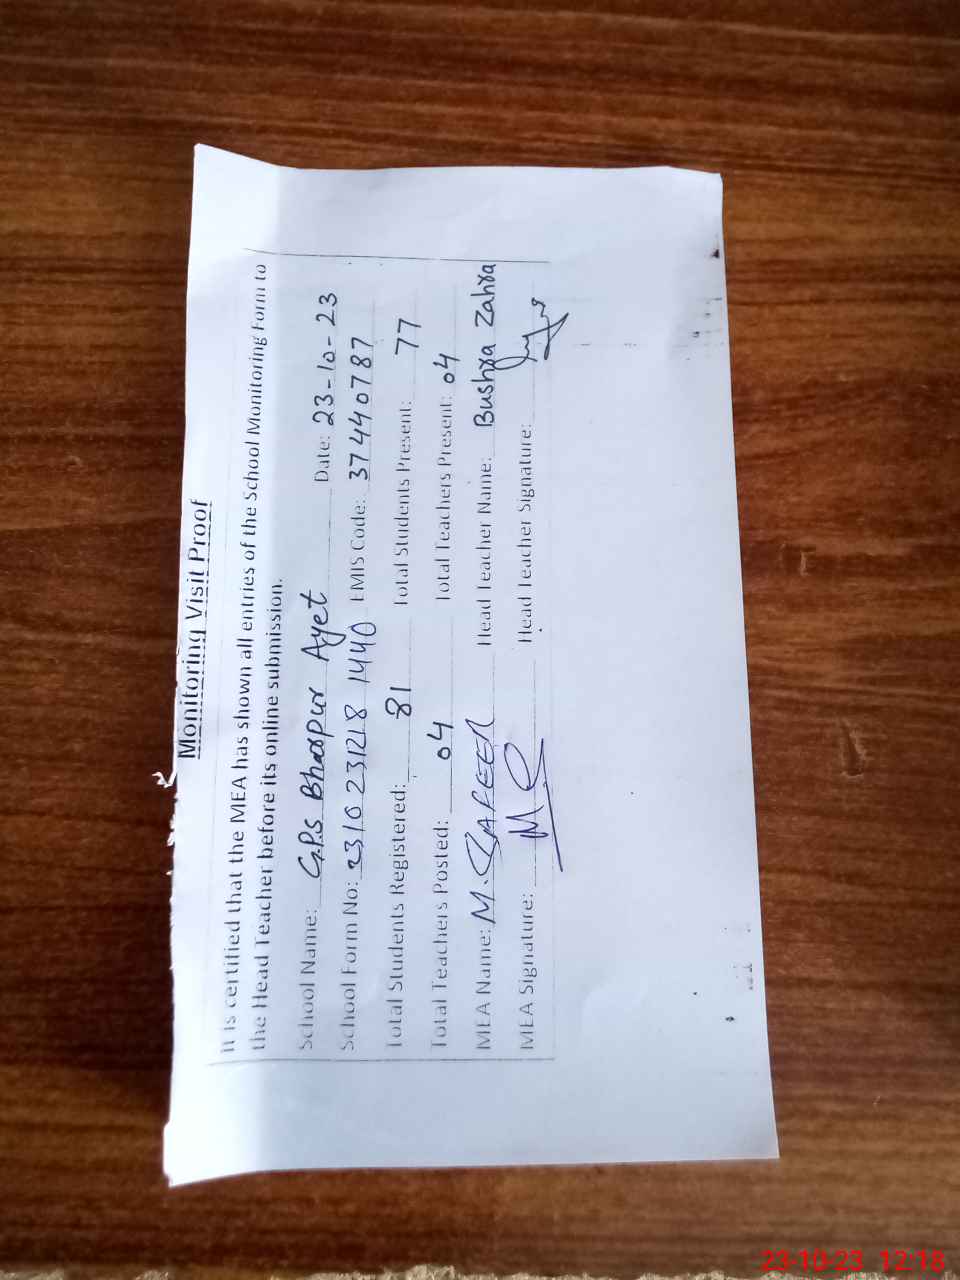 Monitoring Visit Proof
It is certified that the MEA has shown all entries of the School Monitoring Form to
the Head Teacher before its online submission.
School Name: G.P.S Bhospur Ayet Date: 23-10-23
School Form No: 23102312181440 EMIS Code: 37440787
Total Students Registered: 81 Total Students Present: 77
Total Teachers Posted: 04 Total Teachers Present: 04
MEA Name: M. Head Teacher Name: Bushra Zahra
MEA Signature: Head Teacher Signature:
23-10-23 12:18